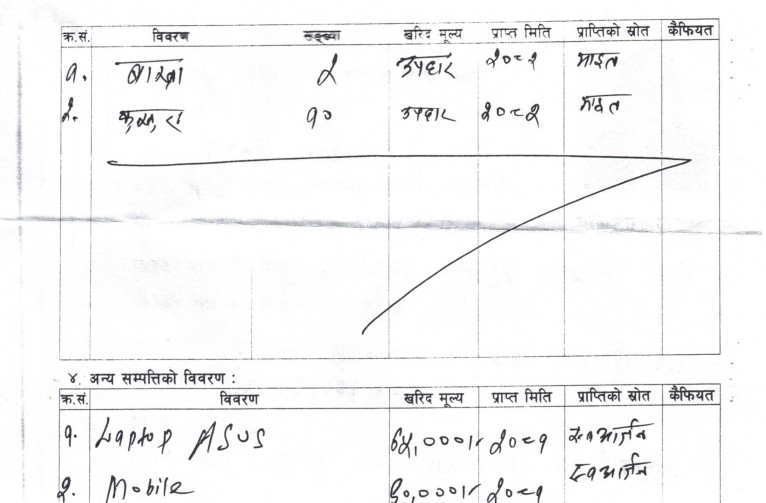 क्र.सं. विवरण सङ्ख्या खरिद मूल्य प्राप्त मिति प्राप्तिको स्रोत कैफियत
१. बाख्रा २ उपहार २०८२ माइत
२. कुखुरा १० उपहार २०८२ माइत
४. अन्य सम्पत्तिको विवरण :
क्र.सं. विवरण खरिद मूल्य प्राप्त मिति प्राप्तिको स्रोत कैफियत
१. Laptop ASUS ६५,०००।- २०८१ स्वआर्जन
२. Mobile २०८१ स्वआर्जन